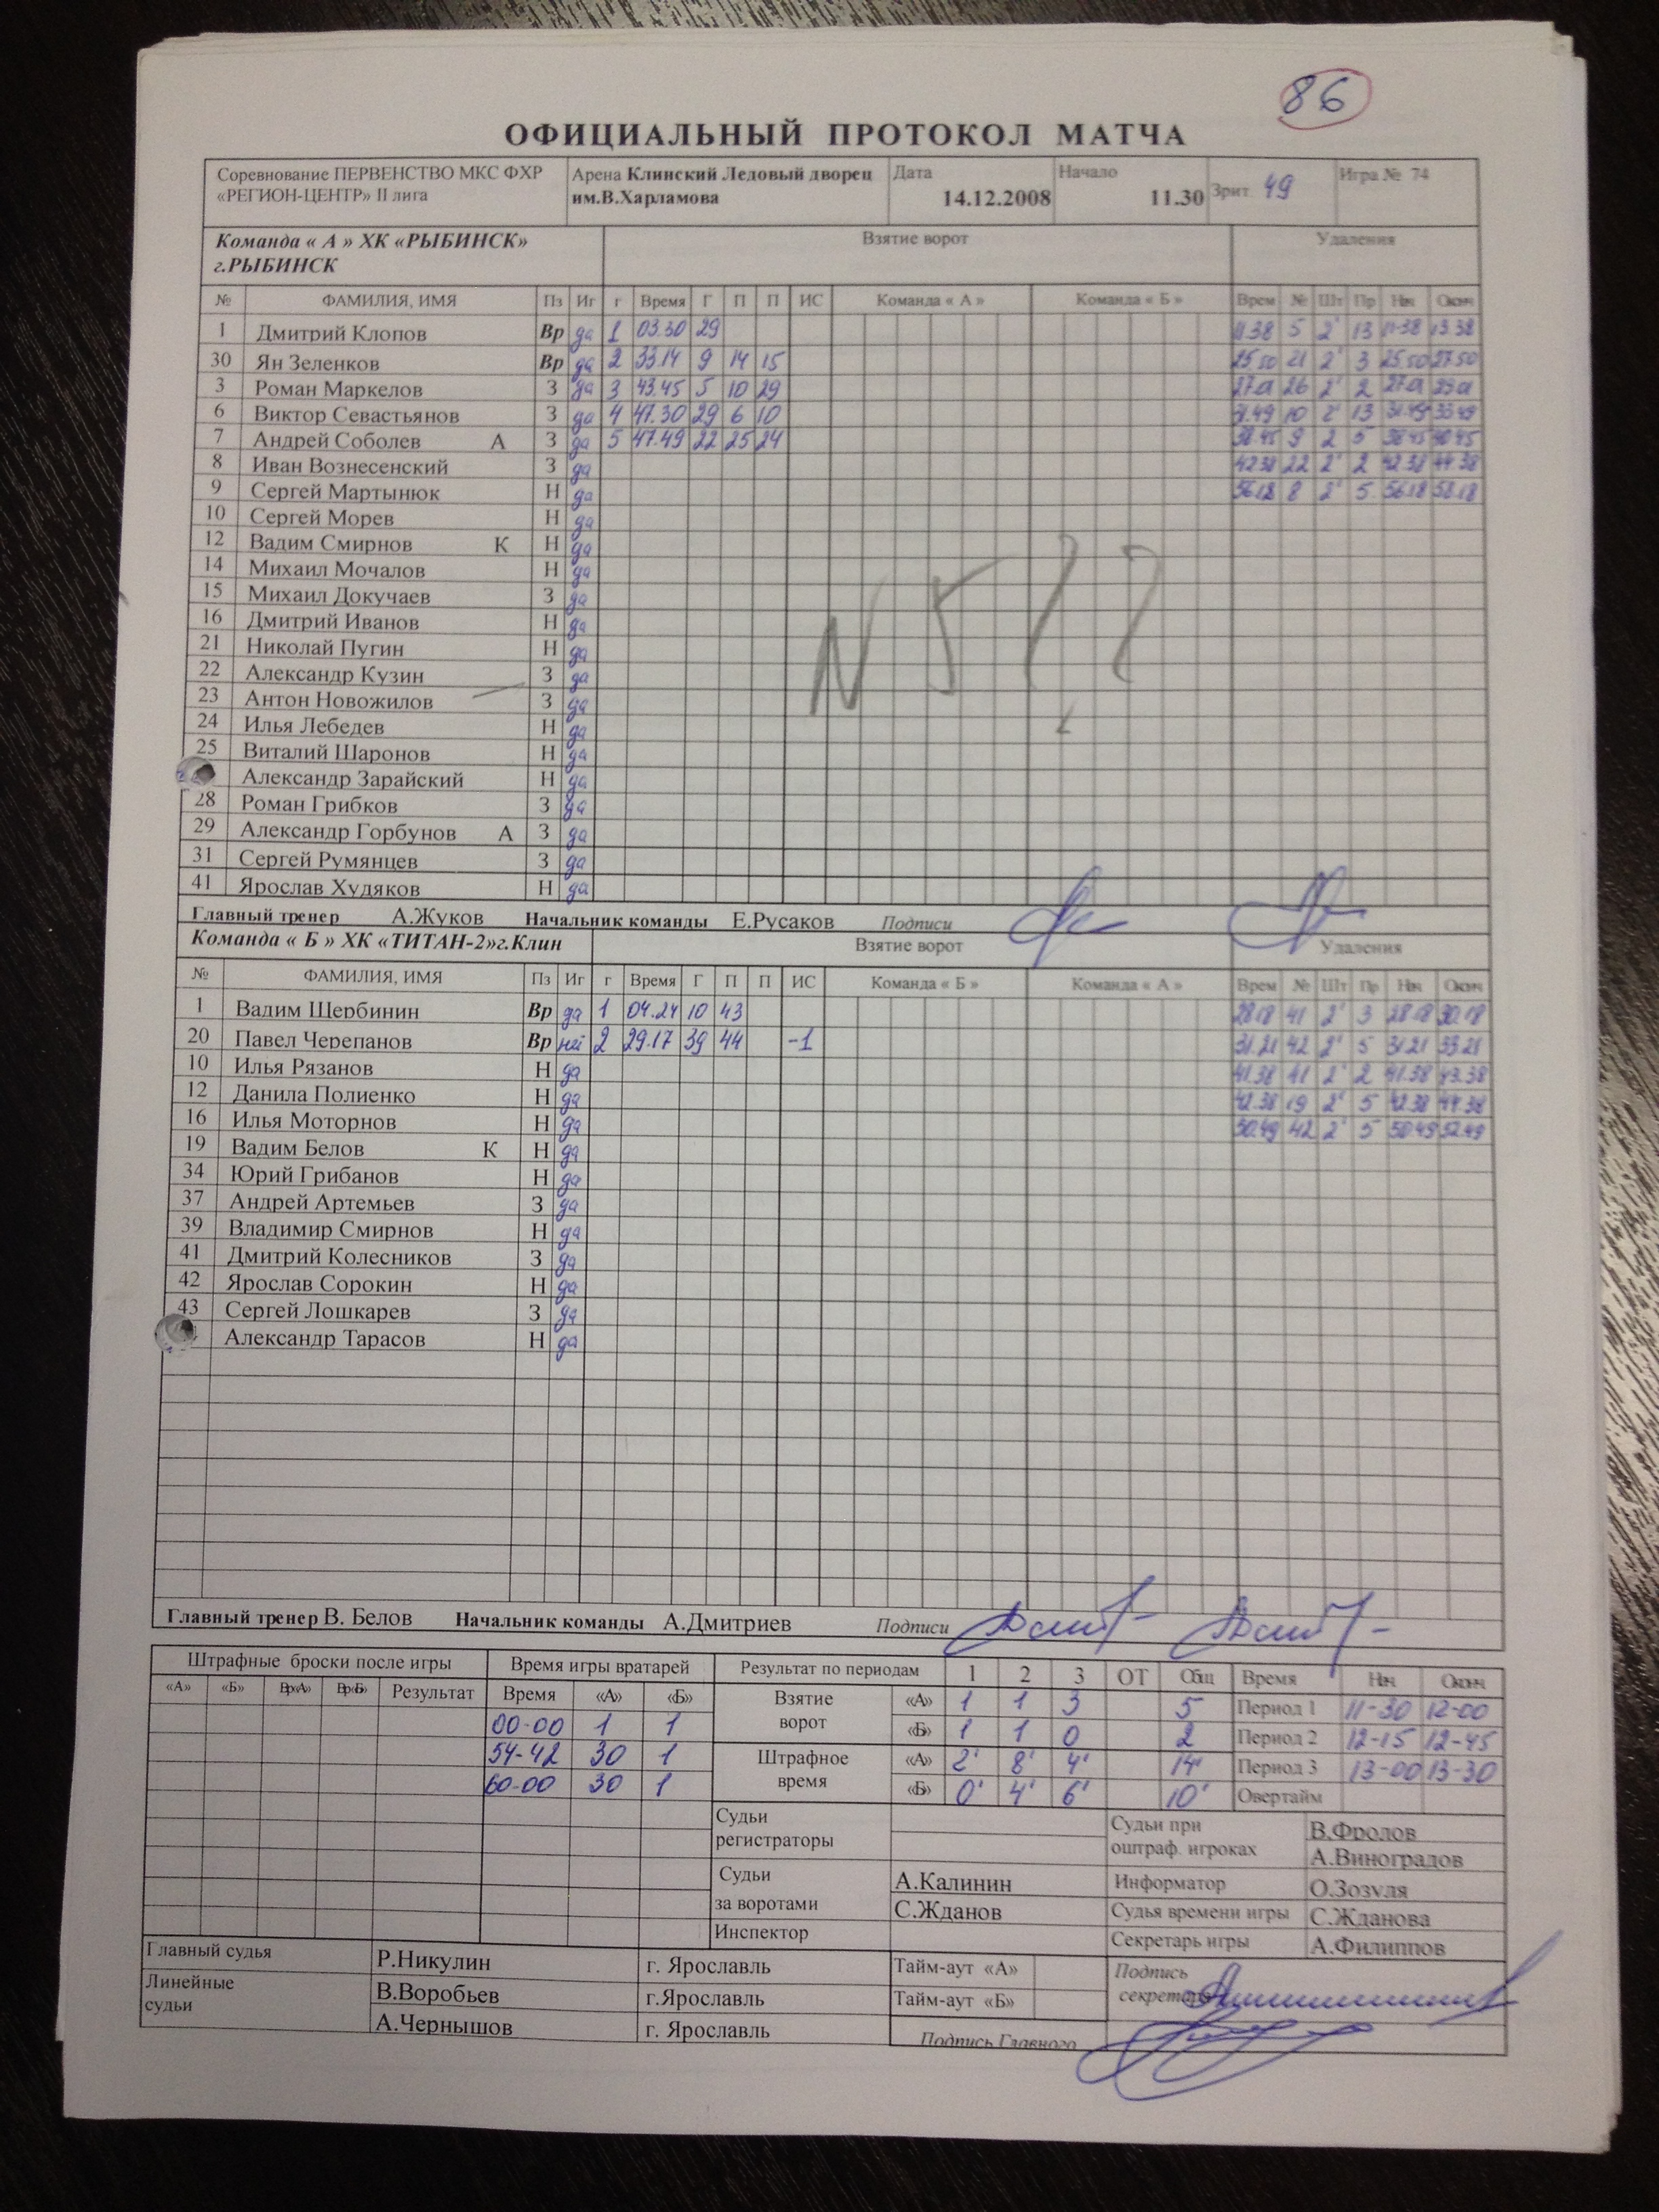 86
ОФИЦИАЛЬНЫЙ ПРОТОКОЛ МАТЧА
Соревнование ПЕРВЕНСТВО МКС ФХР «РЕГИОН-ЦЕНТР» II лига Арена Клинский Ледовый дворец им.В.Харламова Дата 14.12.2008 Начало 11.30 Зрит. 49 Игра № 74
Команда « А » ХК «РЫБИНСК» г.РЫБИНСК Взятие ворот Удаления
№ ФАМИЛИЯ, ИМЯ Пз Иг г Время Г П П ИС Команда « А » Команда « Б » Врем № Шт Пр Нач Оконч
1 Дмитрий Клопов Вр да 1 03.30 29 11.38 5 2' 13 11.38 13.38
30 Ян Зеленков Вр да 2 33.14 9 14 15 25.50 21 2' 3 25.50 27.50
3 Роман Маркелов З да 3 43.45 5 10 29 26 2' 2
6 Виктор Севастьянов З да 4 47.30 29 6 10 31.49 10 2' 13 31.49 33.49
7 Андрей Соболев А З да 5 47.49 22 25 24 38.45 9 2 5 38.45 40.45
8 Иван Вознесенский З да 42.38 22 2' 2 42.38 44.38
9 Сергей Мартынюк Н да 56.18 8 2' 5 56.18 58.18
10 Сергей Морев Н да
12 Вадим Смирнов К Н да
14 Михаил Мочалов Н да
15 Михаил Докучаев З да
16 Дмитрий Иванов Н да
21 Николай Пугин Н да
22 Александр Кузин З да
23 Антон Новожилов З да
24 Илья Лебедев Н да
25 Виталий Шаронов Н да
Александр Зарайский Н да
28 Роман Грибков З да
29 Александр Горбунов А З да
31 Сергей Румянцев З да
41 Ярослав Худяков Н да
N 5 ? ?
Главный тренер А.Жуков Начальник команды Е.Русаков Подписи
Команда « Б » ХК «ТИТАН-2»г.Клин Взятие ворот Удаления
№ ФАМИЛИЯ, ИМЯ Пз Иг г Время Г П П ИС Команда « Б » Команда « А » Врем № Шт Пр Нач Оконч
1 Вадим Щербинин Вр да 1 04.24 10 43 28.18 41 2' 3 28.18 30.18
20 Павел Черепанов Вр 2 29.17 39 44 -1 31.21 42 2' 5 31.21 33.21
10 Илья Рязанов Н да 41.38 41 2' 2 41.38 43.38
12 Данила Полиенко Н да 42.38 19 2' 5 42.38 44.38
16 Илья Моторнов Н да 50.49 42 2' 5 50.49 52.49
19 Вадим Белов К Н да
34 Юрий Грибанов Н да
37 Андрей Артемьев З да
39 Владимир Смирнов Н да
41 Дмитрий Колесников З да
42 Ярослав Сорокин Н да
43 Сергей Лошкарев З да
Александр Тарасов Н да
Главный тренер В. Белов Начальник команды А.Дмитриев Подписи
Штрафные броски после игры Время игры вратарей Результат по периодам 1 2 3 ОТ Общ Время Нач Оконч
«А» «Б» Вр«А» Вр«Б» Результат Время «А» «Б» Взятие ворот «А» 1 1 3 5 Период 1 11-30 12-00
00-00 1 1 «Б» 1 1 0 2 Период 2 12-15 12-45
54-42 30 1 Штрафное время «А» 2' 8' 4' 14' Период 3 13-00 13-30
60-00 30 1 «Б» 0' 4' 6' 10' Овертайм
Судьи регистраторы Судьи при оштраф. игроках В.Фролов
А.Виноградов
Судьи за воротами А.Калинин Информатор О.Зозуля
С.Жданов Судья времени игры С.Жданова
Инспектор Секретарь игры А.Филиппов
Главный судья Р.Никулин г. Ярославль Тайм-аут «А» Подпись секретаря
Линейные судьи В.Воробьев г.Ярославль Тайм-аут «Б»
А.Чернышов г. Ярославль Подпись Главного